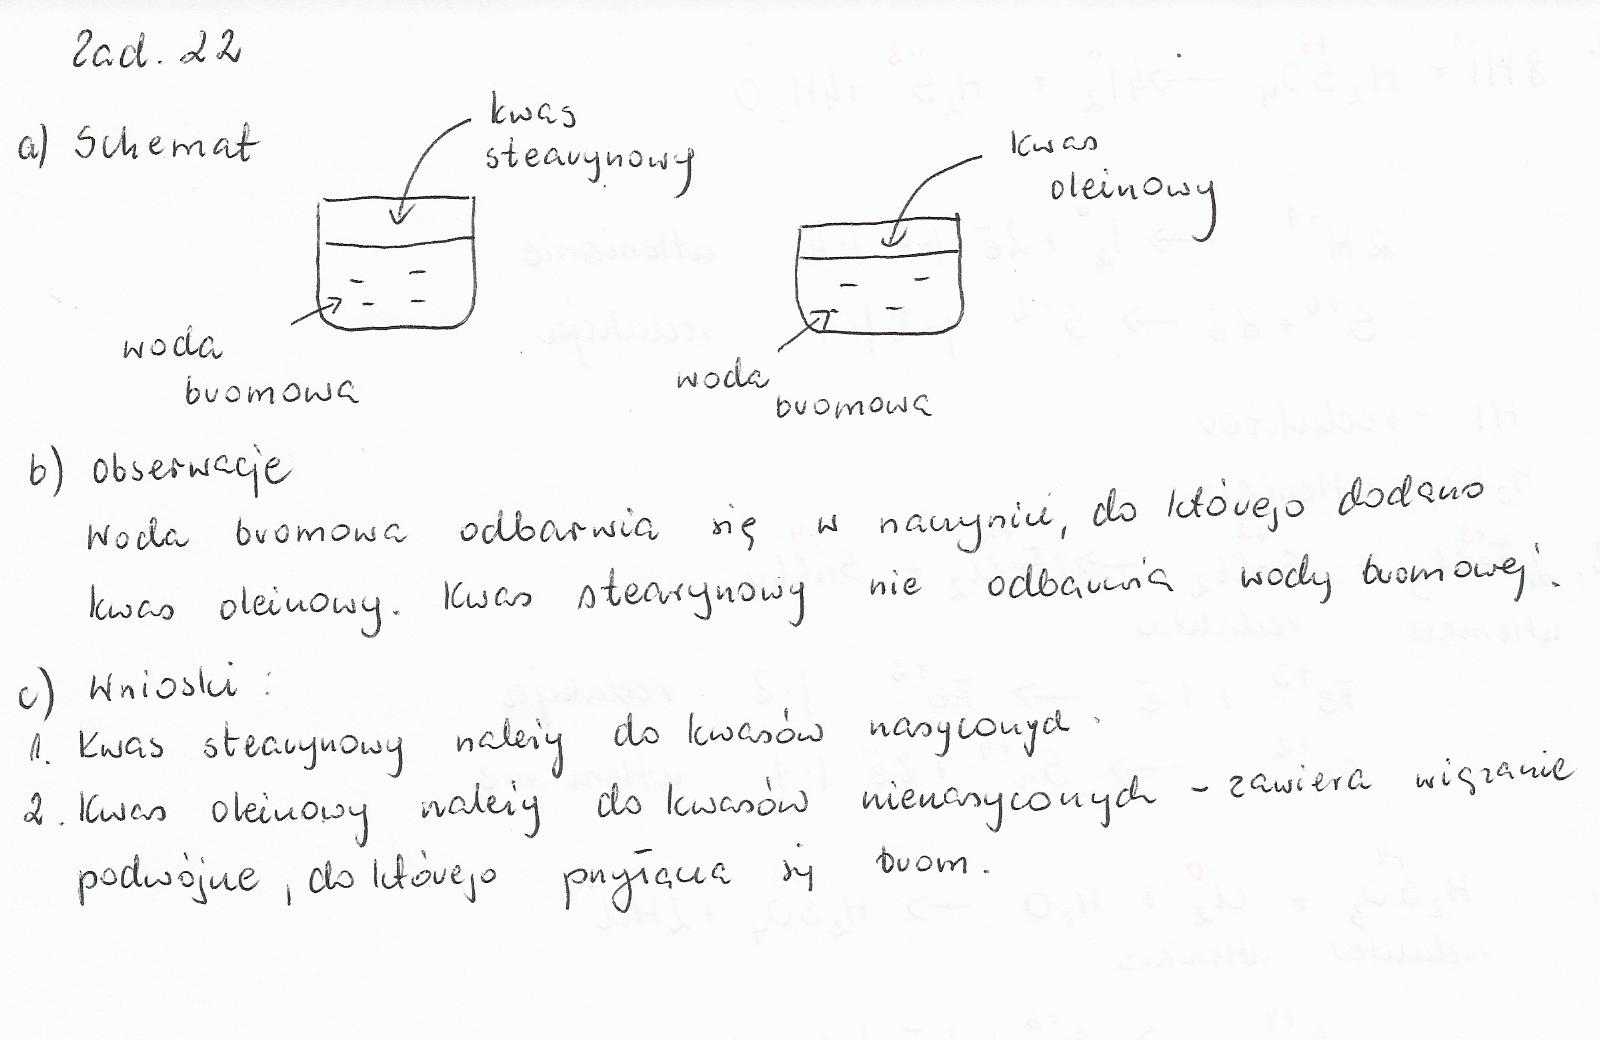 Zad. 22
a) Schemat
kwas
stearynowy
kwas
oleinowy
woda
bromowa
woda
bromowa
b) Obserwacje
Woda bromowa odbarwia się w naczyniu, do którego dodano
kwas oleinowy. Kwas stearynowy nie odbarwia wody bromowej.
c) Wnioski:
1. Kwas stearynowy należy do kwasów nasyconych.
2. Kwas oleinowy należy do kwasów nienasyconych - zawiera wiązanie
podwójne, do którego przyłącza się brom.